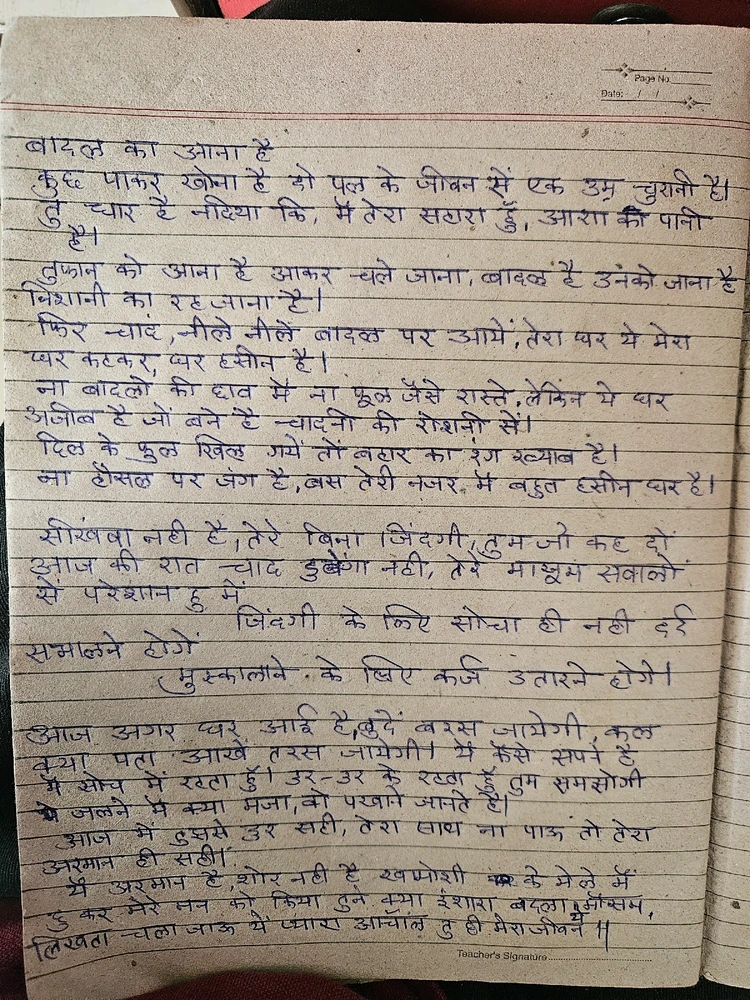 Page No.
Date: / /
बादल का आना है
कुछ पाकर खोना है दो पल के जीवन सें एक उम्र चुरानी है।
तु धार है नदिया कि, मैं तेरा सहारा हुँ, आशा की पानी
है।
तुफान को आना है आकर चले जाना, बादल है उनको जाना है
निशानी का रह जाना है।
फिर चांद, नीले नीले बादल पर आयें, तेरा घर ये मेरा
घर कहकर, घर हसीन है।
ना बादलो की छाव मैं ना फूल जैसे रास्ते, लेकिन ये घर
अजीब है जों बने है चादनी की रोशनी सें।
दिल के फुल खिल गयें तों बहार का रंग ख्याब है।
ना हौसल पर जंग है, बस तेरी नजर मैं बहुत हसीन घर है।
नही है, तेरे बिना जिंदगी, तुम जो कह दों
आज की रात चाद डुबेगा नही, तेरे माशुम सवालों
सें परेशान हु में
जिंदगी के लिए सोचा ही नही दर्द
समालने होगें
मुस्कालाने के लिए कर्ज उतारने होगें।
आज अगर घर आई है, बुदें बरस जायेगी, कल
क्या पता आखें तरस जायेगी। यें कैसे सपने है
मैं सोच में रहता हुँ। डर-डर के रहता हुँ तुम समझोगी
जलने में क्या मजा, वो परवाने जानते है।
आज में तुमसे दुर सही, तेरा साथ ना पाऊ तो तेरा
अरमान ही सही।
यें अरमान है, शोर नही है खामोशी के मेले में
छु कर मेरे मन को किया तुने क्या इंशारा बदला ये मौसम,
लिखता चला जाऊ यें प्यारा आचॅाल तु ही मेरा जीवन॥
Teacher's Signature